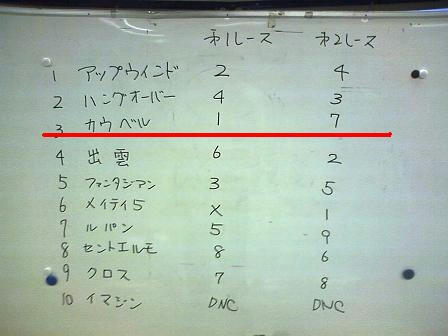 第1レース 第2レース
1 アップウィンド 2 4
2 ハングオーバー 4 3
3 カウベル 1 7
4 出雲 6 2
5 ファンタジアン 3 5
6 メイティ5 X 1
7 ルパン 5 9
8 セントエルモ 8 6
9 クロス 7 8
10 イマジン DNC DNC